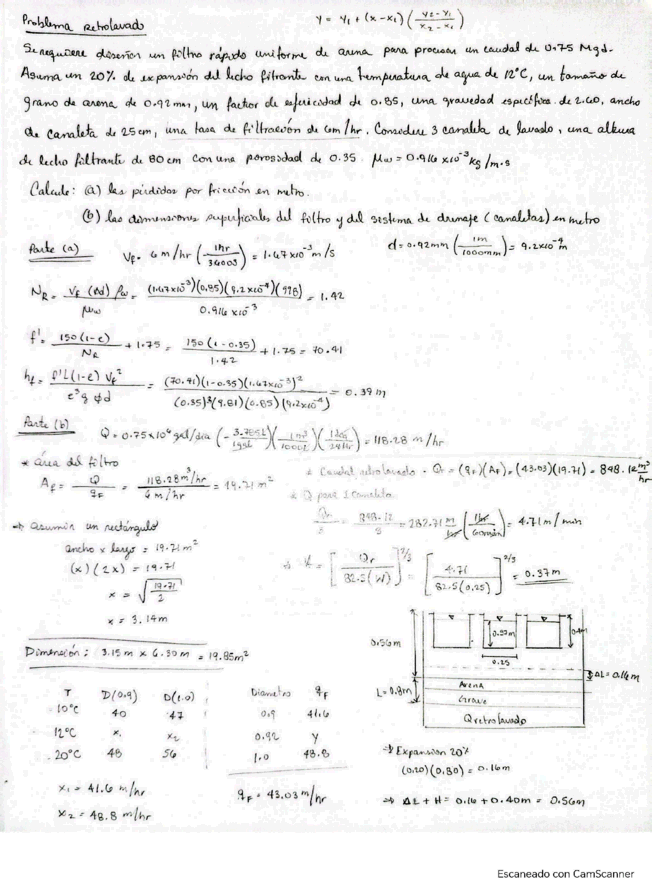 Problema Retrolavado
y = y₁ + (x - x₁) ( y₂ - y₁ / x₂ - x₁ )
Se requiere diseñar un filtro rápido uniforme de arena para procesar un caudal de 0.75 Mgd.
Asuma un 20% de expansión del lecho filtrante con una temperatura de agua de 12°C, un tamaño de
grano de arena de 0.92 mm, un factor de esfericidad de 0.85, una gravedad específica de 2.60, ancho
de canaleta de 25 cm, una tasa de filtración de 6 m/hr. Considere 3 canaleta de lavado, una altura
de lecho filtrante de 80 cm con una porosidad de 0.35. μw = 0.916 x10⁻³ kg/m·s
Calcule: (a) las pérdidas por fricción en metro.
(b) las dimensiones superficiales del filtro y del sistema de drenaje (canaletas) en metro
Parte (a)
Vf = 6 m/hr ( 1hr / 3600s ) = 1.67x10⁻³ m/s
d = 0.92mm ( 1m / 1000mm ) = 9.2x10⁻⁴ m
NR = Vf (Ød) ρw / μw = (1.67x10⁻³)(0.85)(9.2x10⁻⁴)(998) / 0.916 x10⁻³ = 1.42
f' = 150(1-e) / NR + 1.75 = 150(1-0.35) / 1.42 + 1.75 = 70.41
hf = f'L(1-e) Vf² / e³ g φd = (70.41)(1-0.35)(1.67x10⁻³)² / (0.35)³(9.81)(0.85)(9.2x10⁻⁴) = 0.39 m
Parte (b)
Q = 0.75x10⁶ gal/dia ( 3.785L / 1gal )( 1m³ / 1000L )( 1dia / 24hr ) = 118.28 m/hr
* área del filtro
Af = Q / qF = 118.28 m³/hr / 6 m/hr = 19.71 m²
* Caudal retrolavado · Qr = (qF)(AF) = (43.03)(19.71) = 848.12 m³/hr
* Q para 1 canaleta
Qr / 3 = 848.12 / 3 = 282.71 m/hr ( 1hr / 60min ) = 4.71 m/min
⇒ Asumir un rectángulo
ancho x largo = 19.71 m²
(x)(2x) = 19.71
x = √ 19.71 / 2
x = 3.14m
[ Qr / 82.5(W) ]^2/3 = [ 4.71 / 82.5(0.25) ]^2/3 = 0.37 m
Dimensión: 3.15m x 6.30m = 19.85m²
T D(0.9) D(1.0)
10°C 40 47
12°C x₁ x₂
20°C 48 56
x₁ = 41.6 m/hr
x₂ = 48.8 m/hr
Diametro qF
0.9 41.6
0.92 y
1.0 48.8
qF = 43.03 m/hr
0.56m
0.37m
0.4m
0.25
ΔL = 0.16m
L = 0.8m
Arena
Grava
Q retrolavado
⇒ Expansion 20%
(0.20)(0.80) = 0.16m
⇒ ΔL + H = 0.16 + 0.40m = 0.56m
Escaneado con CamScanner